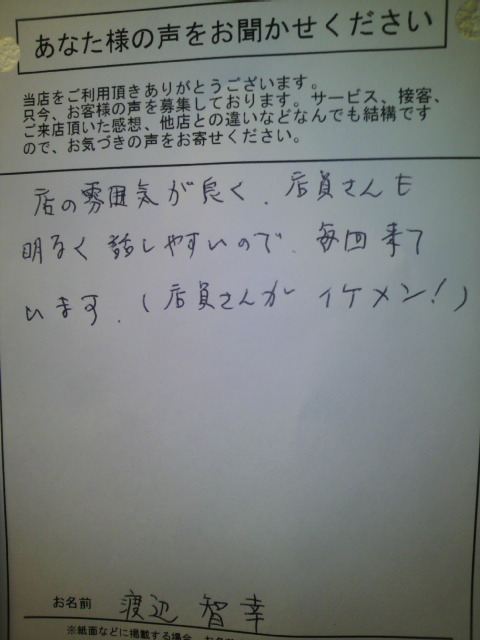 あなた様の声をお聞かせください
当店をご利用頂きありがとうございます。
只今、お客様の声を募集しております。サービス、接客、
ご来店頂いた感想、他店との違いなどなんでも結構です
ので、お気づきの声をお寄せください。
店の雰囲気が良く、店員さんも
明るく話しやすいので、毎回来て
います。(店員さんが イケメン!)
お名前 渡辺 智幸
※紙面などに掲載する場合、お名前